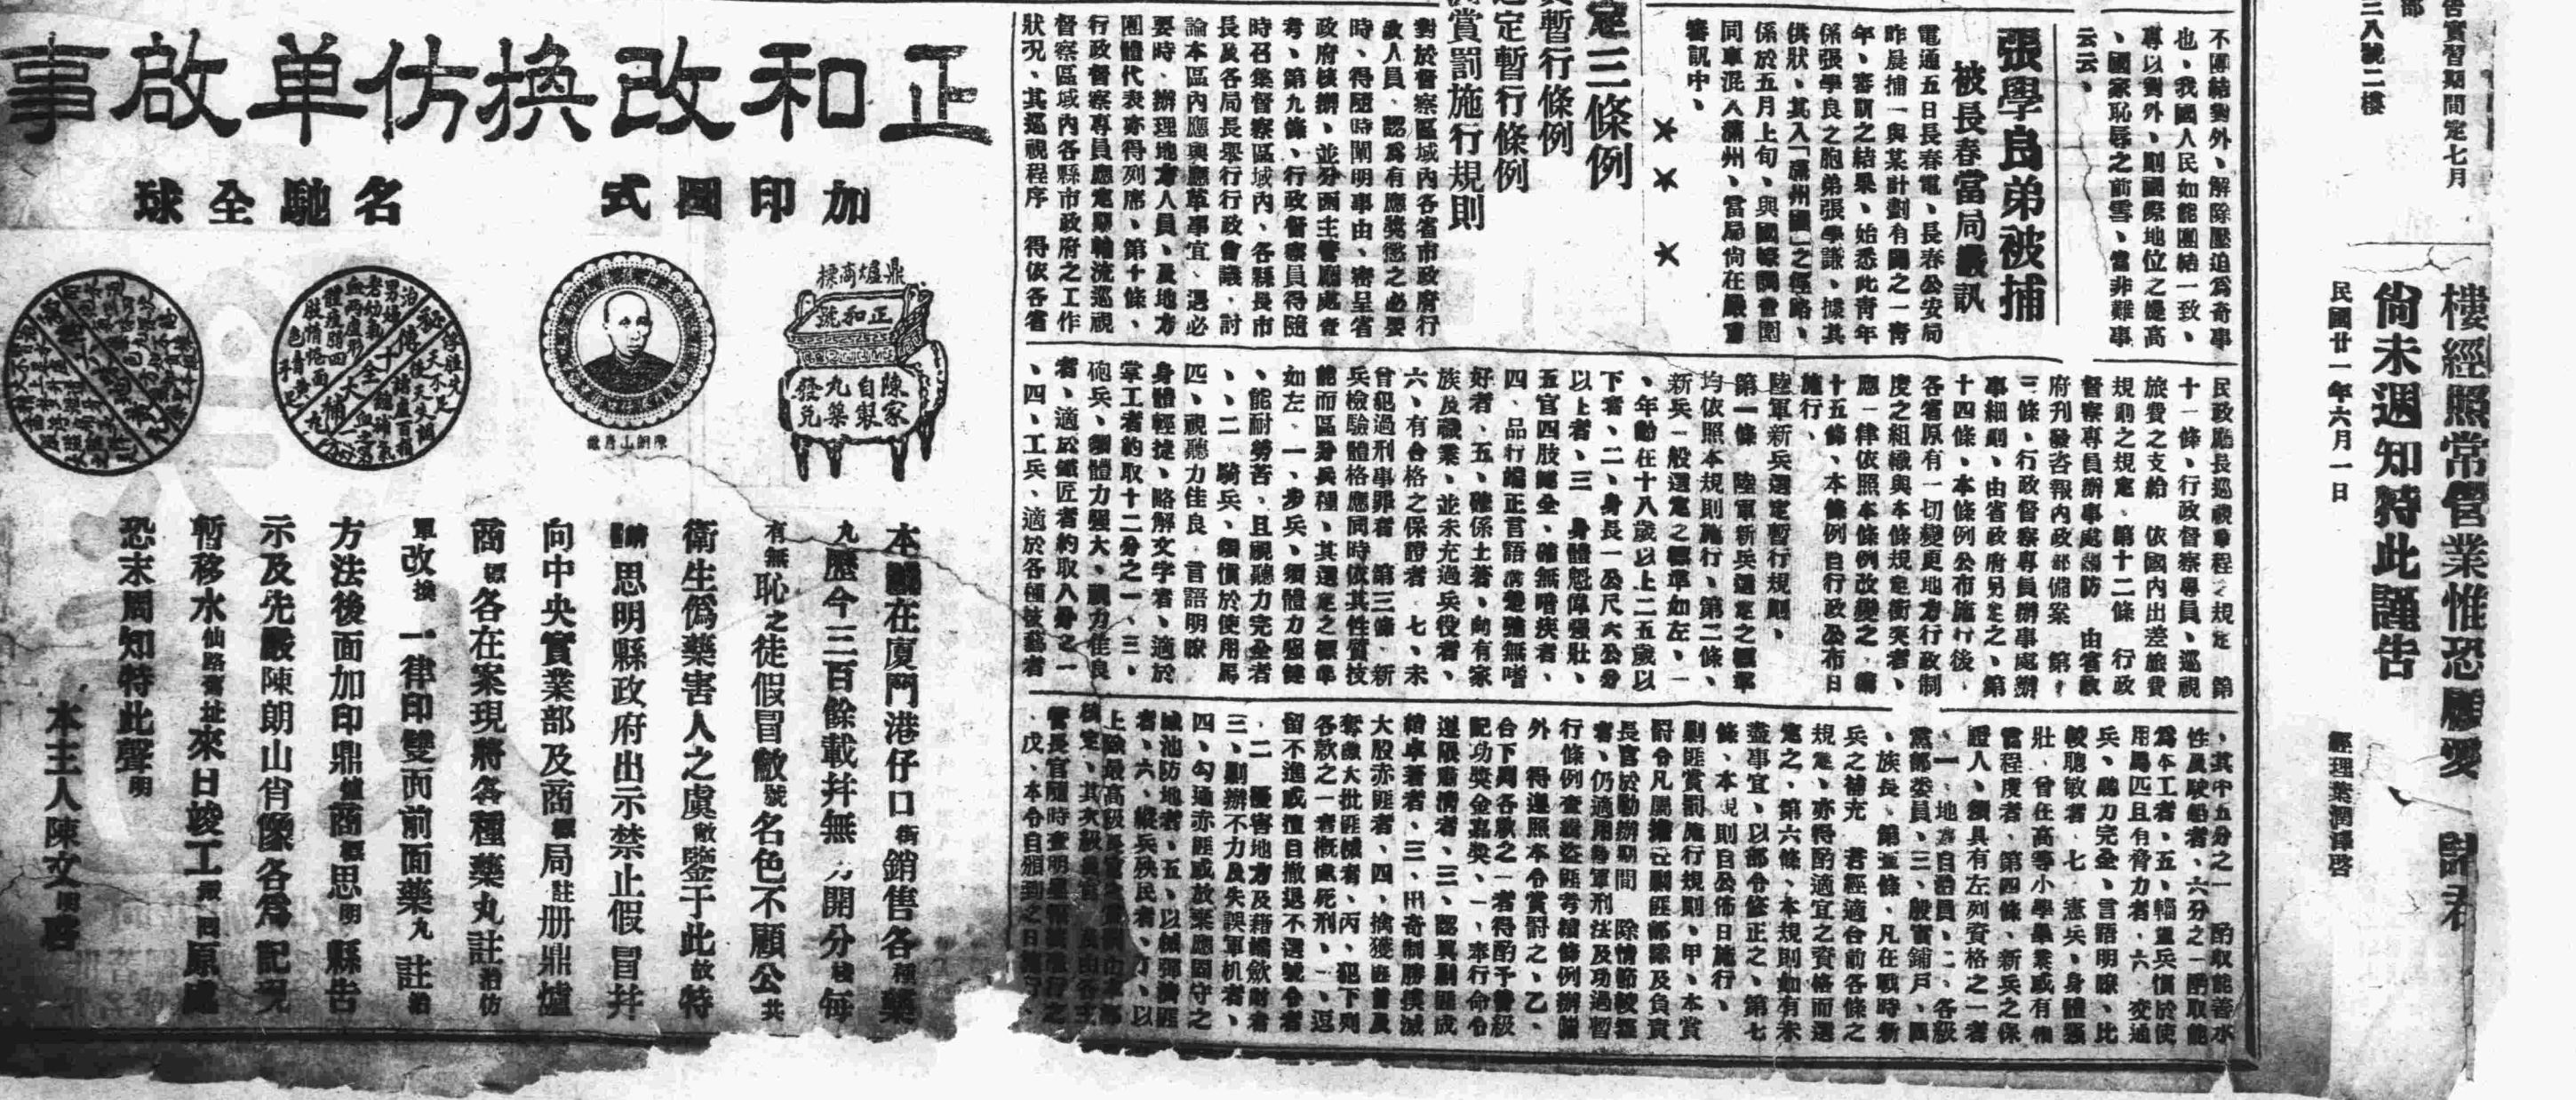 樓經照常營業惟恐顧愛 諸君
尚未週知特此謹告
民國廿一年六月一日
經理葉潤澤啓
告實習期間定七月
三八號二樓
不團結對外、解除壓迫爲奇事
也、我國人民如能團結一致、
專以對外、則國際地位之提高
、國家恥辱之前雪、當非難事
云云、
張學良弟被捕
被長春當局嚴訊
電通五日長春電、長春公安局
昨晨捕一與某計劃有關之一靑
年、審訊之結果、始悉此靑年
係張學良之胞弟張學謙、據其
供狀、其入「滿州國」之經路、
係於五月上旬、與國聯調査團
同車混入滿州、當局尙在嚴重
審訊中、
定三條例
暫行條例
定暫行條例
賞罰施行規則
對於督察區域內各省市政府行
政人員、認爲有應獎懲之必要
時、得隨時闡明事由、密呈省
政府核辦、並分函主管廳處査
考、第九條、行政督察員得隨
時召集督察區域內、各縣長市
長及各局長舉行行政會議、討
論本區內應興應革事宜、遇必
要時、辦理地方人員、及地方
團體代表亦得列席、第十條、
行政督察專員應定期輪流巡視
督察區域內各縣市政府之工作
狀況、其巡視程序 得依各省
民政廳長巡視章程之規定 第
十一條、行政督察專員、巡視
旅費之支給 依國內出差旅費
規則之規定、第十二條 行政
督察專員辦事處關防 由省政
府刊發咨報內政部備案 第十
三條、行政督察專員辦事處辦
事細則、由省政府另定之、第
十四條、本條例公布施行後、
各省原有一切變更地方行政制
度之組織與本條規定衝突者、
應一律依照本條例改變之、第
十五條、本條例自行政公布日
施行、
陸軍新兵選定暫行規則、
第一條 陸軍新兵選定之標準
均依照本規則施行、第二條、
新兵一般選定之標準如左、一
、年齡在十八歲以上二五歲以
下者、二、身長一公尺六公分
以上者、三 身體魁偉强壯、
五官四肢健全、確無暗疾者、
四、品行端正言語淸楚確無嗜
好者、五、確係土著、尙有家
族及職業、並未充過兵役者、
六、有合格之保證者、七、未
曾犯過刑事罪者 第三條、新
兵檢驗體格應同時依其性質技
能而區分兵種、其選定之標準
如左、一、步兵、須體力强健
、能耐勞苦、且視聽力完全者
、二、騎兵、須慣於使用馬
匹、視聽力佳良、言語明瞭
身體輕捷、略解文字者、適於
掌工者約取十二分之一、三、
砲兵、須體力强大、視力佳良
者、適於鞍匠者約取八分之一
、四、工兵、適於各種技藝者
、其中五分之一 酌取能善水
性及駛船者、六分之一酌取能
爲木工者、五、輜重兵慣於使
用馬匹且有膂力者、六、交通
兵、聽力完全、言語明瞭、比
較聰敏者、七、憲兵、身體强
壯、曾在高等小學畢業或有相
當程度者、第四條、新兵之保
證人、須具有左列資格之一者
、一、地方自治員、二、各級
黨部委員、三、殷實鋪戶、四
、族長、第五條、凡在戰時新
兵之補充 若經適合前各條之
規定、亦得酌適宜之資格而選
定之、第六條、本規則如有未
盡事宜、以部令修正之、第七
條、本規則自公佈日施行、
剿匪賞罰施行規則、甲、本賞
罰令凡屬擔任剿匪部隊及負責
長官於勤辦期間 除情節較重
者、仍適用陸軍刑法及功過暫
行條例查緝盜匪考績條例辦理
外 得遵照本令賞罰之、乙、
合下列各款之一者得酌予晉級
記功獎金嘉獎、一、奉行命令
遵限肅淸者、三、認眞剿匪成
績卓著者、三、出奇制勝撲滅
大股赤匪者、四、擒獲匪首及
奪繳大批匪械者、丙、犯下列
各款之一者槪處死刑、一、逗
留不進或擅自撤退不遵號令者
、二 擾害地方及藉端歛財者
三、剿辦不力及失誤軍机者、
四、勾通赤匪或放棄應固守之
城池防地者、五、以械彈濟匪
者、六、縱兵殃民者、丁、以
上除最高級長官之賞罰由本部
核定、其次級長官 及由各主
管長官隨時查明
、戊、本令自頒到之日施行、
正和改換仿单啟事
加印圖式
名馳全球
鼎爐商標
正和號
陳家
自製
丸藥
發兌
陳朗山肖像
秘傳十全大補丸
本號在廈門港仔口街銷售各種藥
丸歷今三百餘載幷無 力開分棧每
有無恥之徒假冒敝號名色不顧公共
衛生僞藥害人之虞敝鑒于此故特
請思明縣政府出示禁止假冒幷
向中央實業部及商標局註册鼎爐
商標各在案現將各種藥丸註治仿
單改換一律印雙面前面藥丸註治
方法後面加印鼎爐商標思明縣告
示及先嚴陳朗山肖像各爲記現
暫移水仙路舊址來日竣工搬回原處
恐未周知特此聲明
本主人陳文明啓